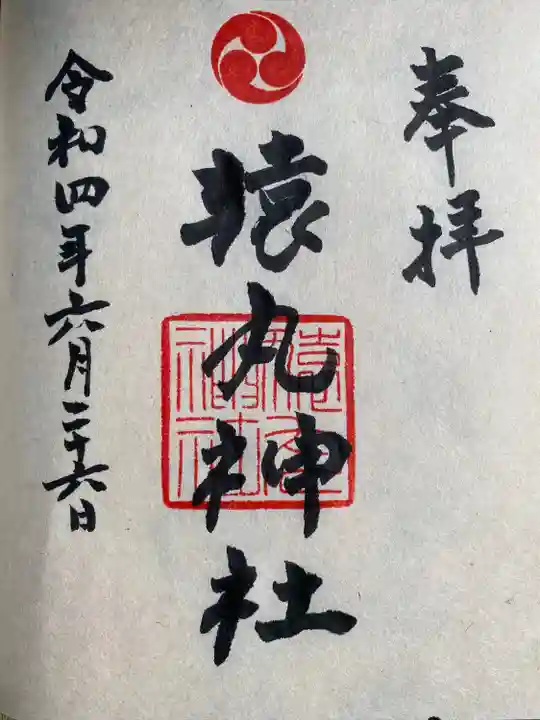 奉拝
猿丸神社
令和四年六月二十六日